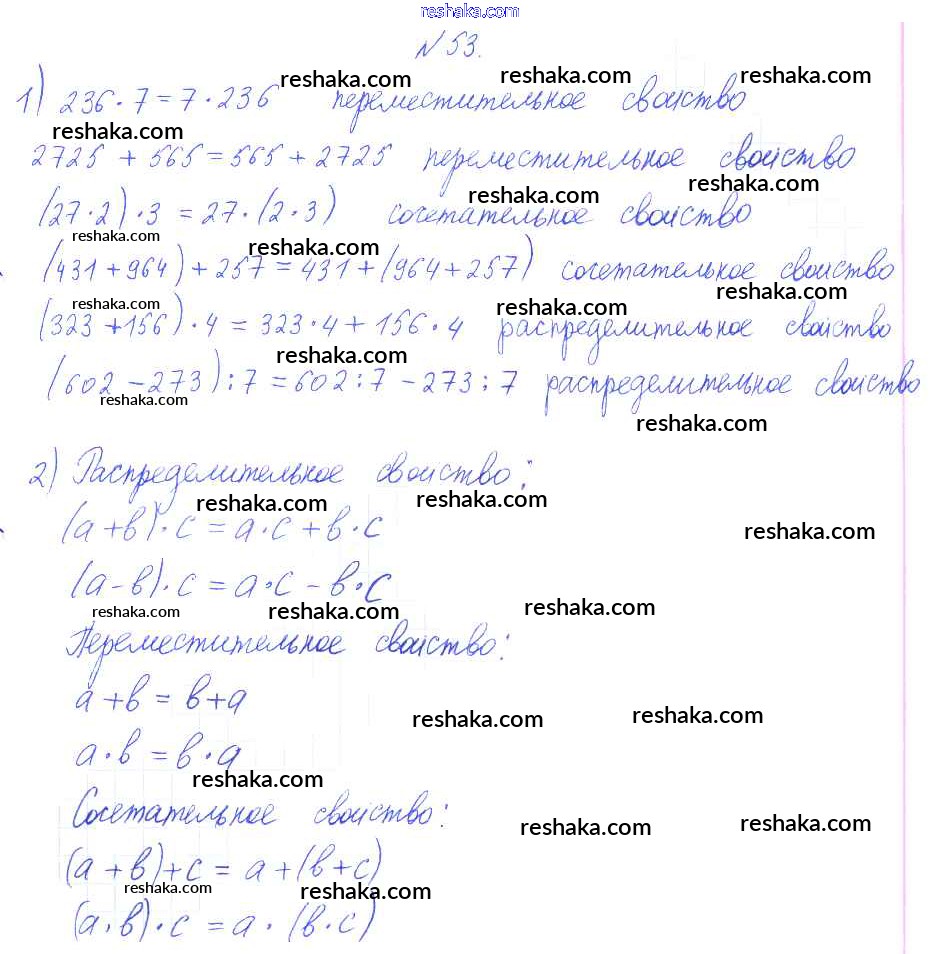 reshaka.com
№ 53.
reshaka.com reshaka.com reshaka.com
1) 236 · 7 = 7 · 236 переместительное свойство
reshaka.com
2725 + 565 = 565 + 2725 переместительное свойство
reshaka.com reshaka.com
(27 · 2) · 3 = 27 · (2 · 3) сочетательное свойство
reshaka.com reshaka.com
(431 + 964) + 257 = 431 + (964 + 257) сочетательное свойство
reshaka.com reshaka.com reshaka.com
(323 + 156) · 4 = 323 · 4 + 156 · 4 распределительное свойство
reshaka.com
(602 - 273) : 7 = 602 : 7 - 273 : 7 распределительное свойство
reshaka.com reshaka.com
2) Распределительное свойство:
reshaka.com reshaka.com
(а + в) · с = а · с + в · с
reshaka.com
(а - в) · с = а · с - в · с
reshaka.com reshaka.com reshaka.com
Переместительное свойство:
а + в = в + а
reshaka.com reshaka.com
а · в = в · а
reshaka.com
Сочетательное свойство:
reshaka.com reshaka.com
(а + в) + с = а + (в + с)
reshaka.com reshaka.com
(а · в) · с = а · (в · с)